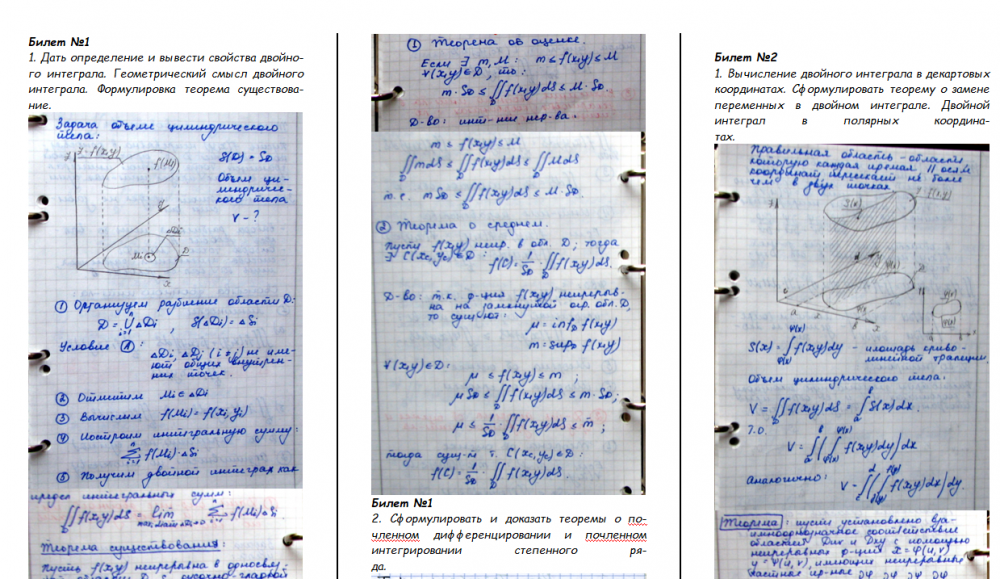 Билет №1
1. Дать определение и вывести свойства двойно-
го интеграла. Геометрический смысл двойного
интеграла. Формулировка теорема существова-
ние.
Задача объеме цилиндрического
тела:
z=f(x,y)
f(Mi)
S(D) = S_D
Объем ци-
линдричес-
кого тела
V - ?
① Организуем разбиение области D:
D = ∪ΔDi , S(ΔDi) = ΔSi
Условие Ⓐ:
ΔDi, ΔDj (i≠j) не име-
ют общих внутрен-
них точек.
② Отметим Mi ∈ ΔDi
③ Вычислим f(Mi) = f(xi, yi)
④ Построим интегральную сумму:
∑ f(Mi)·ΔSi
⑤ Получим двойной интеграл как
предел интегральной сумм:
∬f(x,y)dS = lim ∑ f(Mi)ΔSi
Теорема существования:
Пусть f(x,y) непрерывна в односвяз.
① Теорема об оценке.
Если ∃ m, M: m ≤ f(x,y) ≤ M
∀(x,y)∈D, то:
m·S_D ≤ ∬f(x,y)dS ≤ M·S_D
Д-во: инт-ние нер-ва.
m ≤ f(x,y) ≤ M
∬mdS ≤ ∬f(x,y)dS ≤ ∬MdS
т.е. mS_D ≤ ∬f(x,y)dS ≤ M·S_D.
② Теорема о среднем.
Пусть f(x,y) непр. в обл. D; тогда
∃ C(x_c,y_c)∈D: f(C) = 1/S_D · ∬f(x,y)dS.
Д-во: т.к. ф-ция f(x,y) непрерыв-
на на замкнутой огр. обл. D,
то сущ-ют:
μ = inf_D f(x,y)
m = sup_D f(x,y)
∀(x,y)∈D:
μ ≤ f(x,y) ≤ m ;
μS_D ≤ ∬f(x,y)dS ≤ m·S_D;
μ ≤ 1/S_D ∬f(x,y)dS ≤ m ;
тогда сущ-т т. C(x_c,y_c)∈D:
f(C) = 1/S_D · ∬f(x,y)dS.
Билет №1
2. Сформулировать и доказать теоремы о по-
членном дифференцировании и почленном
интегрировании степенного ря-
да.
Билет №2
1. Вычисление двойного интеграла в декартовых
координатах. Сформулировать теорему о замене
переменных в двойном интеграле. Двойной
интеграл в полярных координа-
тах.
Правильная область - область
которую каждая прямая || осям
координат пересекает не более
чем в двух точках.
S(x) = ∫f(x,y)dy - площадь криво-
линейной трапеции
Объем цилиндрического тела:
V = ∬f(x,y)dS = ∫S(x)dx.
Т.о.
V = ∫(∫f(x,y)dy)dx
Аналогично:
V = ∫(∫f(x,y)dx)dy
Теорема: пусть установлено вза-
имнооднозначное соответствие
областей Dxy и Duv с помощью
непрерывных ф-ций x = φ(u,v)
y = ψ(u,v), имеющих непрерывные
частные пр-ные